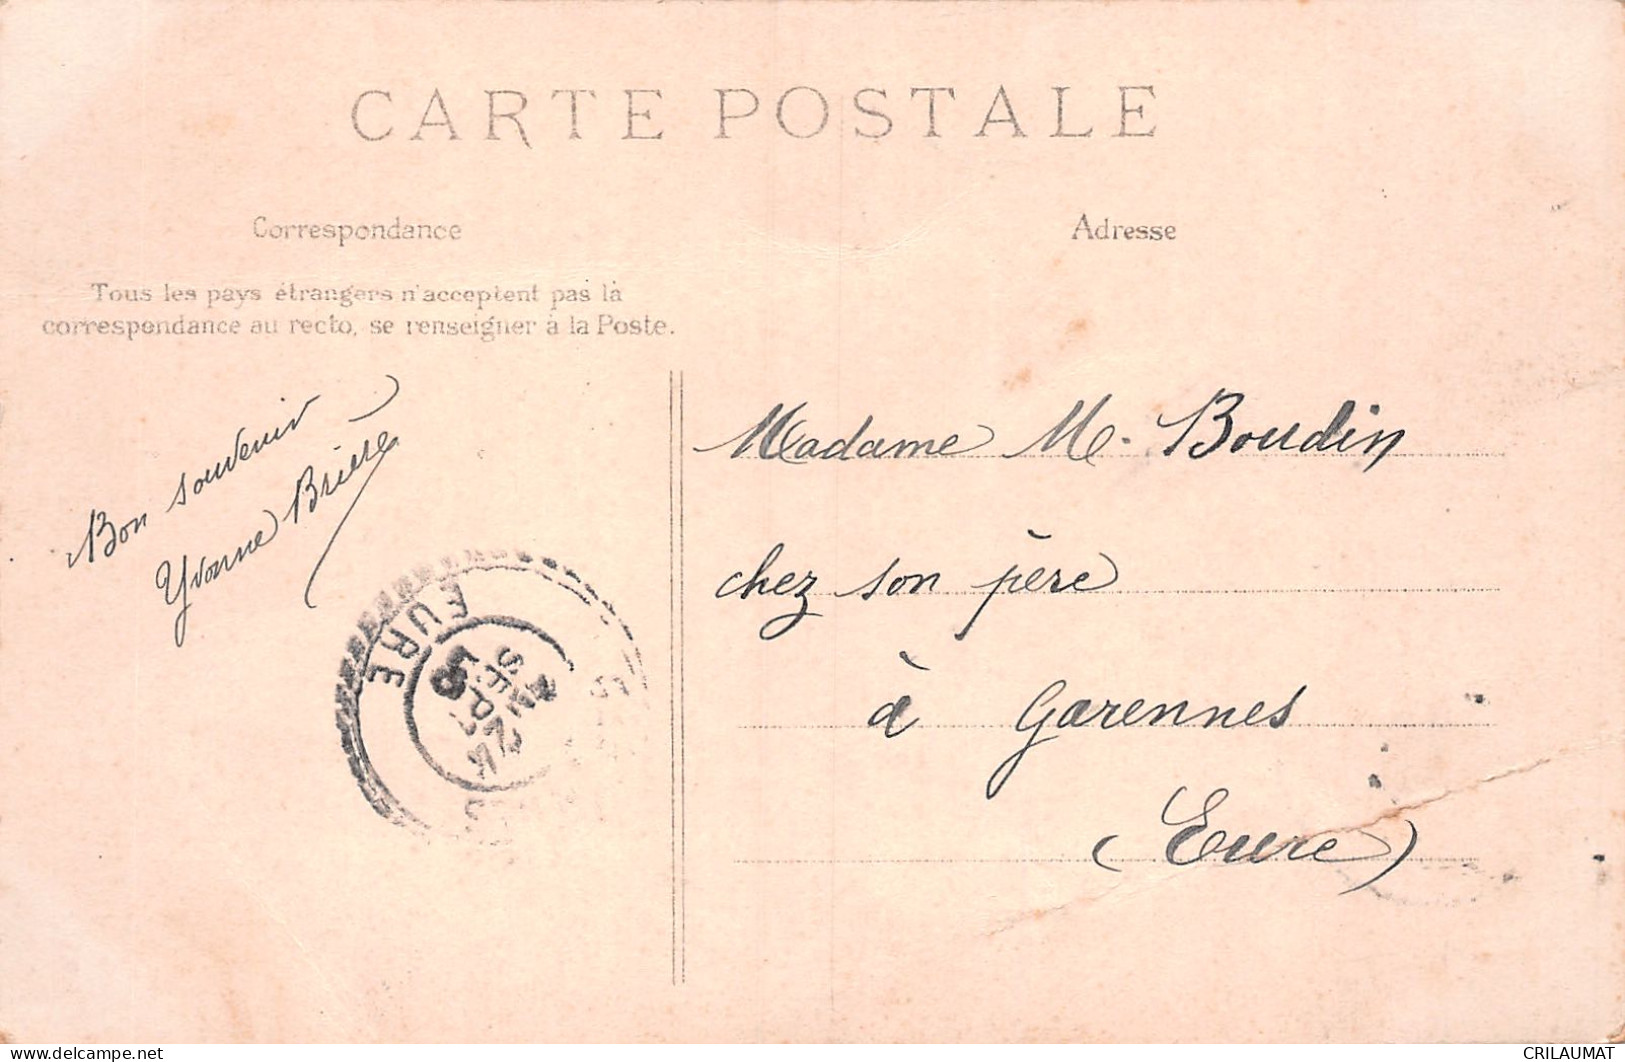 CARTE POSTALE
Correspondance
Adresse
Tous les pays étrangers n'acceptent pas la
correspondance au recto, se renseigner à la Poste.
Bon souvenir
Yvonne Brière
Madame M. Boudin
chez son père
à Garennes
(Eure)
EURE
SEPT
CRILAUMAT